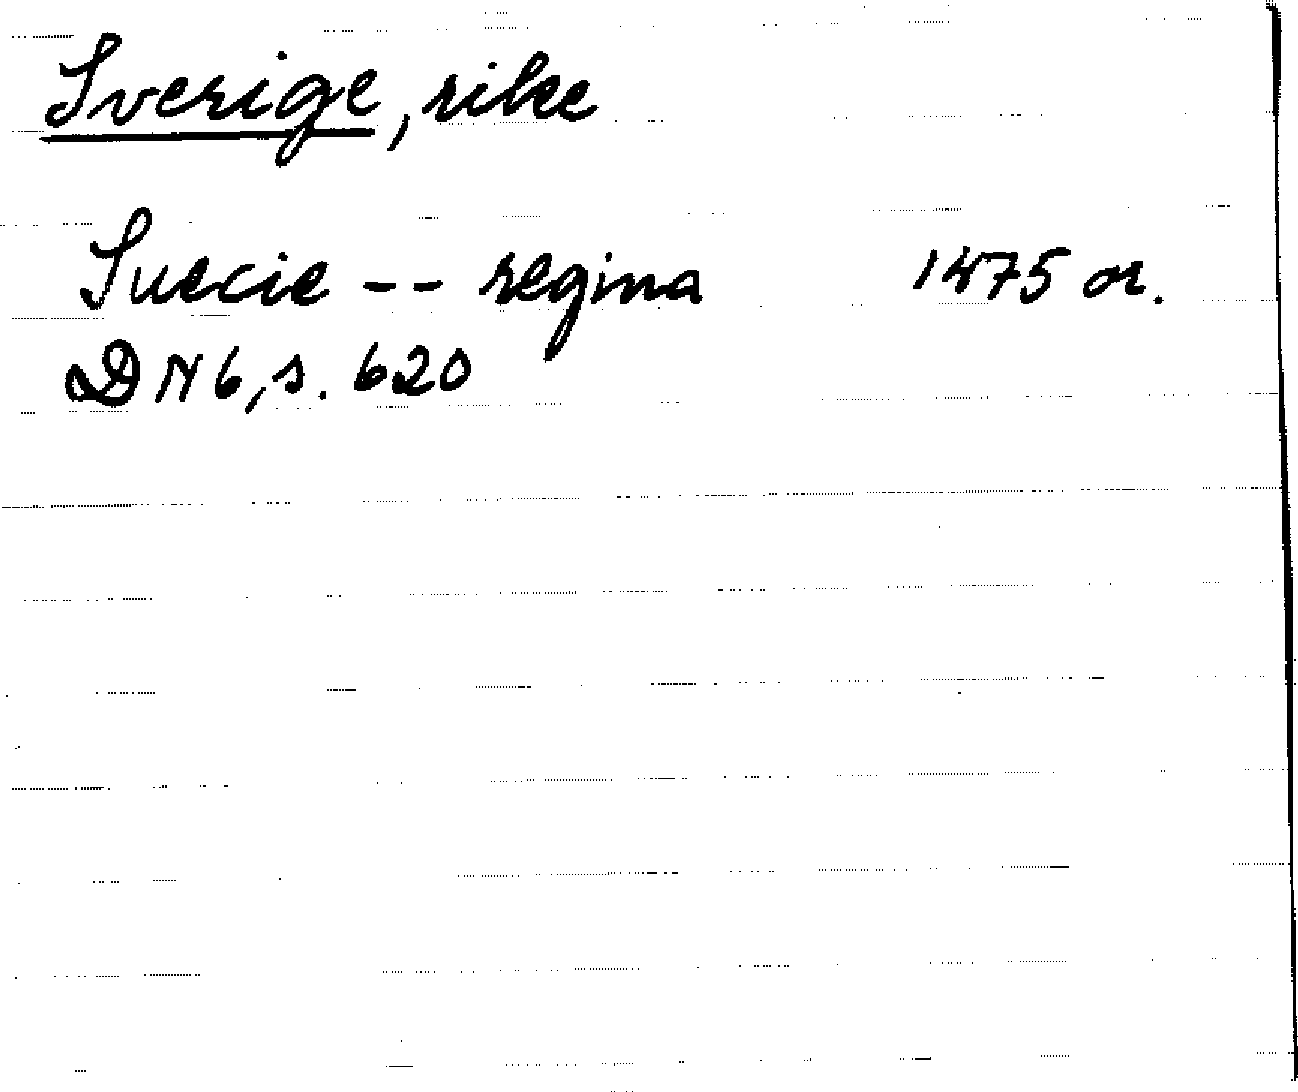 Sverige, rike
Suecie -- regina 1475 or.
DN 6, s. 620